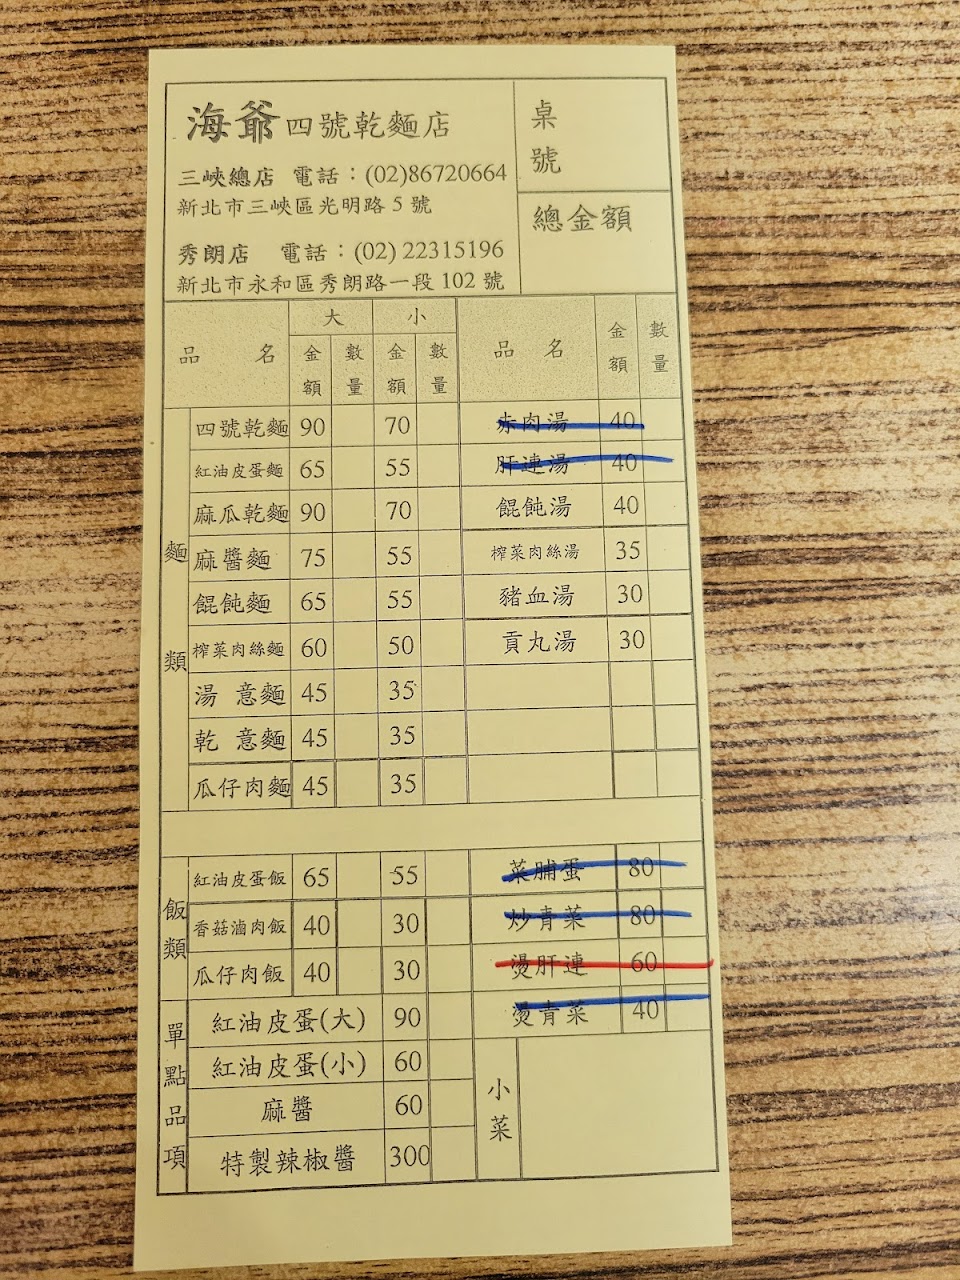 海爺四號乾麵店
三峽總店 電話：(02)86720664
新北市三峽區光明路 5 號
秀朗店 電話：(02) 22315196
新北市永和區秀朗路一段 102 號
桌號
總金額
品名 大 小 品名 金額 數量
金額 數量 金額 數量
麵類
四號乾麵 90 70 赤肉湯 40
紅油皮蛋麵 65 55 肝連湯 40
麻瓜乾麵 90 70 餛飩湯 40
麻醬麵 75 55 榨菜肉絲湯 35
餛飩麵 65 55 豬血湯 30
榨菜肉絲麵 60 50 貢丸湯 30
湯 意麵 45 35
乾 意麵 45 35
瓜仔肉麵 45 35
飯類
紅油皮蛋飯 65 55 菜脯蛋 80
香菇滷肉飯 40 30 炒青菜 80
瓜仔肉飯 40 30 燙肝連 60
單點品項
紅油皮蛋(大) 90 燙青菜 40
紅油皮蛋(小) 60 小菜
麻醬 60
特製辣椒醬 300